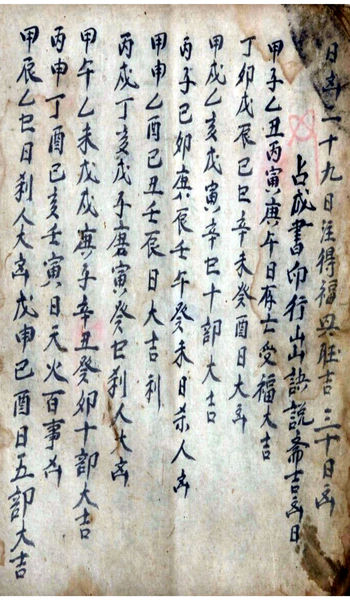 日吉二十九日注得福與胜吉三十日凶
占戍書印行山訣說斋吉凶日
甲子乙丑丙寅庚午日有亡受福大吉
丁卯戊辰己巳辛未癸酉日大凶
甲戌乙亥戊寅辛巳十部大吉
丙子己卯庚辰壬午癸未日杀人凶
甲申乙酉己丑壬辰日大吉利
丙戌丁亥戊子庚寅癸巳刹人大凶
甲午乙未戊戌庚子辛丑癸卯十部大吉
丙申丁酉己亥壬寅日天火百事凶
甲辰乙巳日刹人大凶戊申己酉日五部大吉